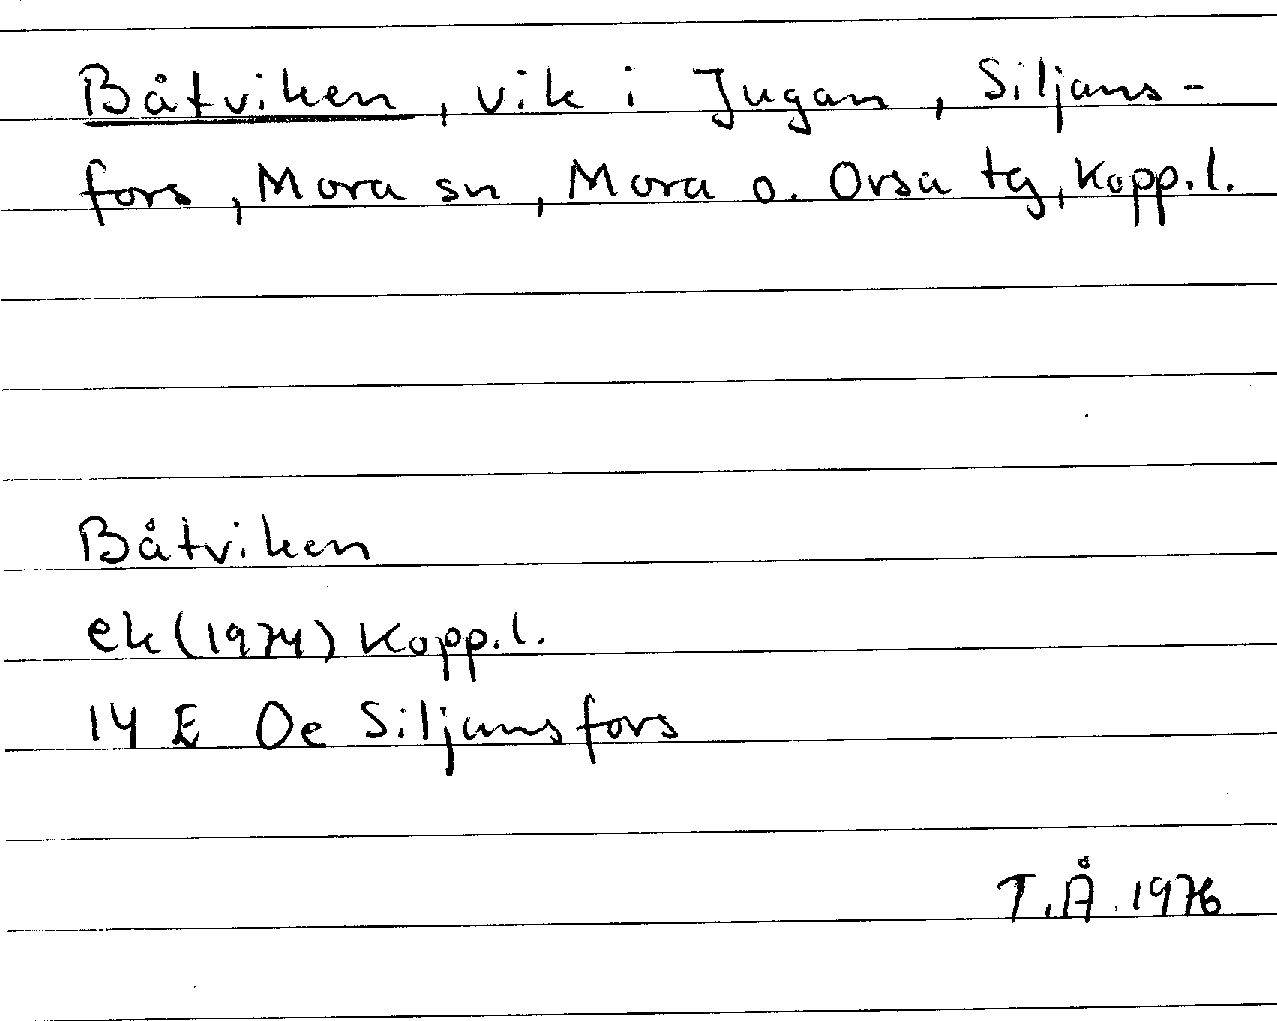 Båtviken, vik i Jugan, Siljans-
fors, Mora sn, Mora o. Orsa tg, Kopp.l.
Båtviken
ek (1974) Kopp.l.
14 E Oe Siljansfors
T.Å. 1976